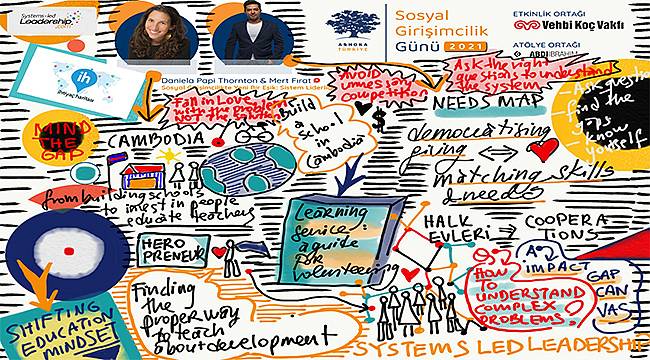 Systems-led
Leadership
.com
ASHOKA
TÜRKİYE
Sosyal
Girişimcilik
Günü 2021
ETKİNLİK ORTAĞI
Vehbi Koç Vakfı
ATÖLYE ORTAĞI
ABDİ İBRAHİM
ih
ihtiyaç haritası
Daniela Papi Thornton & Mert Fırat
Sosyal Girişimcilikte Yeni Bir Eşik: Sistem Liderliği
Fall in Love
with the problem
not the solution
AVOID
unnessary
competition
Ask the right
questions to understand
the system
- Ask question
- find the
gaps
- know
yourself
MIND
THE
GAP
CAMBODIA
build
a
school
in
Cambodia
$
NEEDS MAP
democratising
giving
matching skills
& needs
from building schools
to invest in people
educate teachers
HERO
PRENEUR
Learning
service:
a guide
for
volunteering
HALK
EVLERİ
COOPERA
TIONS
SHIFTING
EDUCATION
MINDSET
Finding
the
proper way
to teach
about development
HOW
TO
UNDERSTAND
COMPLEX
PROBLEMS?
IMPACT
GAP
CAN
VAS
SYSTEMS LED LEADERSHIP